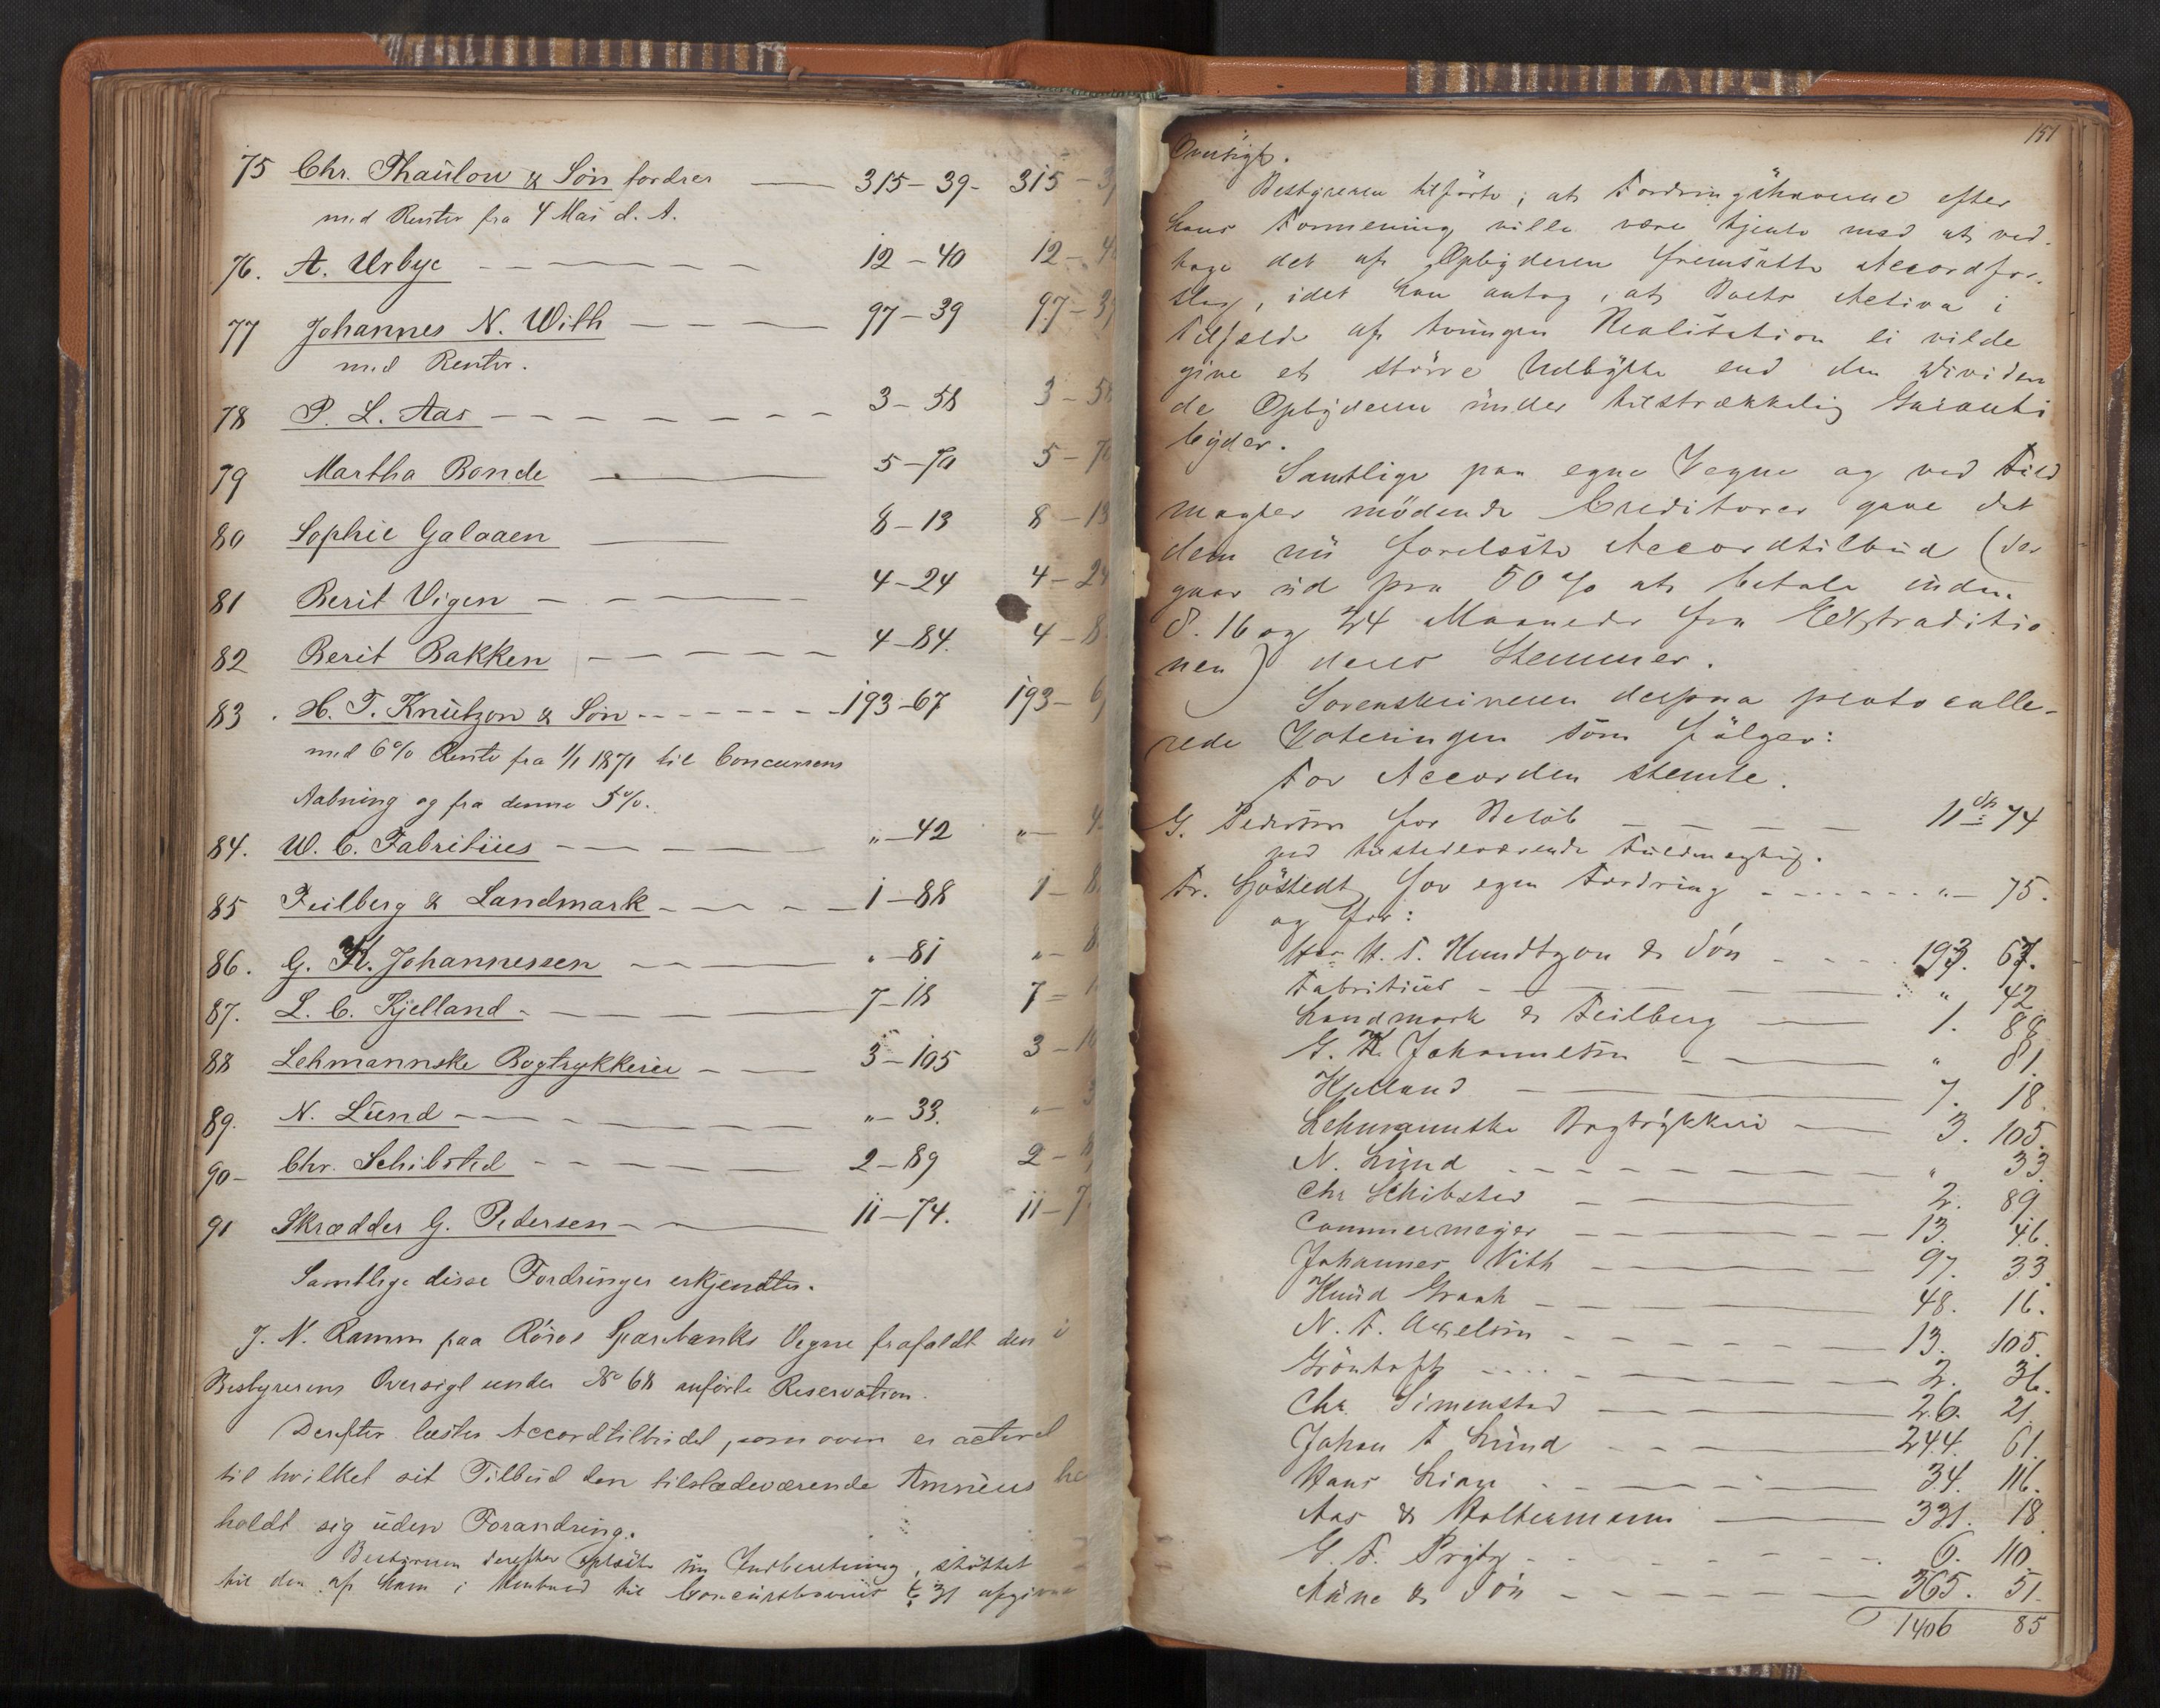 75 Chr. Thaulow & Søn fordrer — 315 - 39 - 315 - 3
med Renter fra 4 Mai d. A.
76. A. Urbye — 12 - 40 12 - 4
77 Johannes N. With — 97 - 39 97 - 3
med Renter.
78 P. L. Aas — 3 - 58 3 - 5
79 Martha Bonde — 5 - 70 5 - 7
80 Sophie Galaaen — 8 - 13 8 - 13
81 Berit Vigen — 4 - 24 4 - 24
82 Berit Bakken — 4 - 84. 4 - 8
83. H. T. Knutzon & Søn — 193 - 67 193 - 6
med 6% Rente fra 1/1 1871 til Concursens
Aabning og fra denne 5%.
84. W. C. Fabritius — „ - 42 „ - 4
85 Feilberg & Landmark — 1 - 88 1 - 8
86. G. K. Johannessen — „ - 81 „ - 8
87. L. C. Kjelland — 7 - 18 7 - 1
88 Lehmannske Bogtrykkerie — 3 - 105 3 - 10
89. N. Lund — „ - 33. „ - 3
90 - Chr. Schibsted — 2 - 89 2 - 8
91 Skrædder G. Pedersen — 11 - 74. 11 - 7
Samtlige disse Fordringer erkjendtes.
J. N. Ramm paa Røros Sparebanks Vegne frafaldt den i
Bestyrerens Oversigt under No 68 anførte Reservation.
Derefter læstes Accordtilbudet, som oven er acteret
til hvilket sit Tilbud den tilstedeværende Amneus he
holdt sig uden Forandring.
Bestyreren derefter oplæste sin Indberetning, støttet
til den af ham i Henhold til Concurslovens § 31 afgivne
151
Oversigt.
Bestyreren tilførte, at Fordringshaverne efter
hans Formening ville være tjente med at ved-
tage det af Opbyderen fremsatte Accordfor-
slag, idet han antog, at Boets Activa i
Tilfælde af tvungen Realisation ei vilde
give et større Udbytte end den Dividen
de Opbyderen under tilstrækkelig Garanti
byder.
Samtlige paa egne Vegne og ved Fuld
magter mødende Creditorer gave det
dem nu forelæste Accordtilbud (der
gaar ud paa 50% at betale inden
8. 16 og 24 Maaneder fra Extraditio
nen) deres Stemmer.
Sorenskriveren derpaa protocolle-
rede Voteringen som følger:
For Accorden stemte.
G. Pedersen for Beløb — 11 74
ved tilstedeværende Fuldmægtig.
Fr. Sjöstedt for egen Fordring — „ - 75.
og for:
H. T. Knudtzon & Søn — 193. 67.
Fabritius — „ 42
Landmark & Feilberg — 1. 88
G. K. Johannesen — „ 81.
Kjelland — 7. 18.
Lehmannske Bogtrykkeri — 3. 105.
N. Lund — „ 33.
Chr Schibsted — 2. 89
Cammermeyer — 13. 46.
Johannes With — 97. 33
Knud Graah — 48. 16.
N. F. Axelsen — 13. 105.
Gröntoft — 2. 36.
Chr. Simensted — 26. 21.
Johan F Lund — 244. 61.
Hans Lian — 34. 116.
Aas & Woltermann — 331. 18.
G. F. Prytz — 6. 110.
Aune & Søn — 365. 51.
1406 85